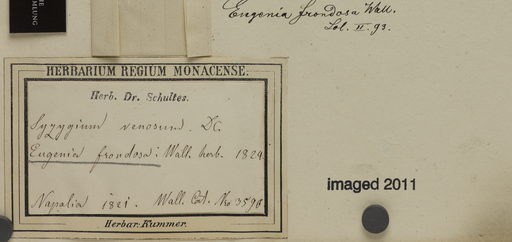 MLUNG
Eugenia frondosa Wall.
Lol. II. 93.
HERBARIUM REGIUM MONACENSE.
Herb. Dr. Schultes.
Syzygium venosum. DC.
Eugenia frondosa: Wall. herb. 1824
Napalia 1821. Wall. Cat. No 3598
Herbar. Kummer.
imaged 2011